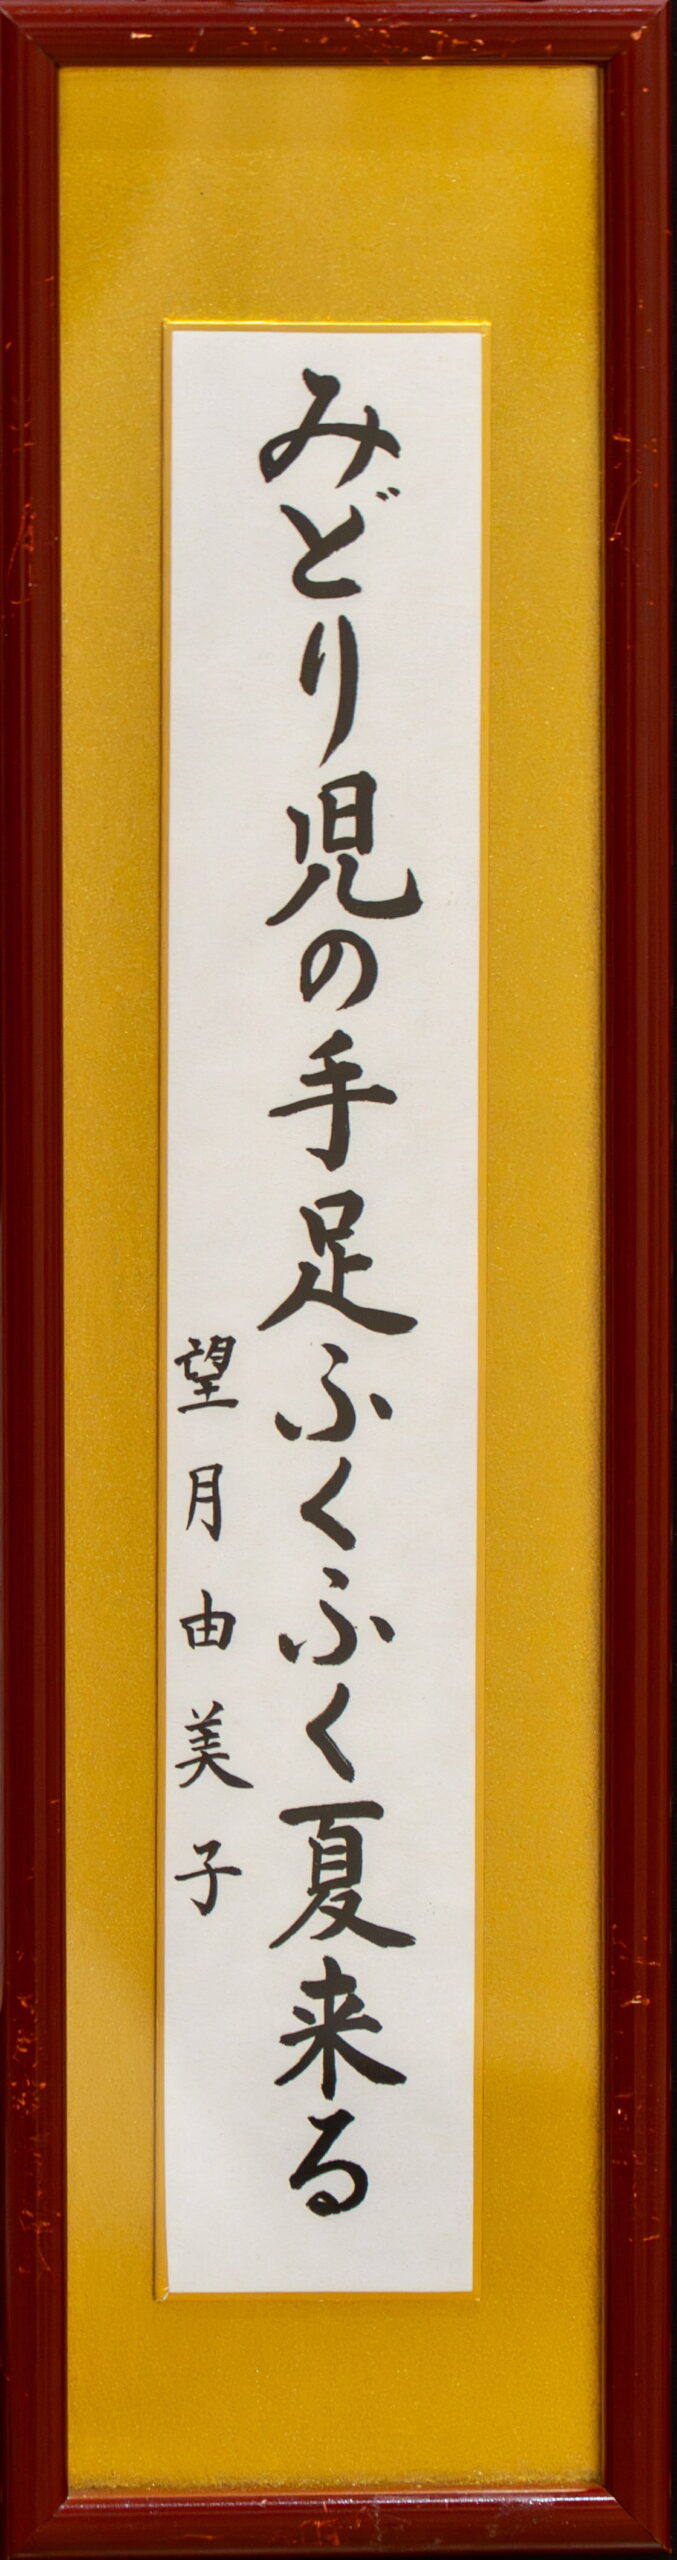 みどり児の手足ふくふく夏来る
望月由美子